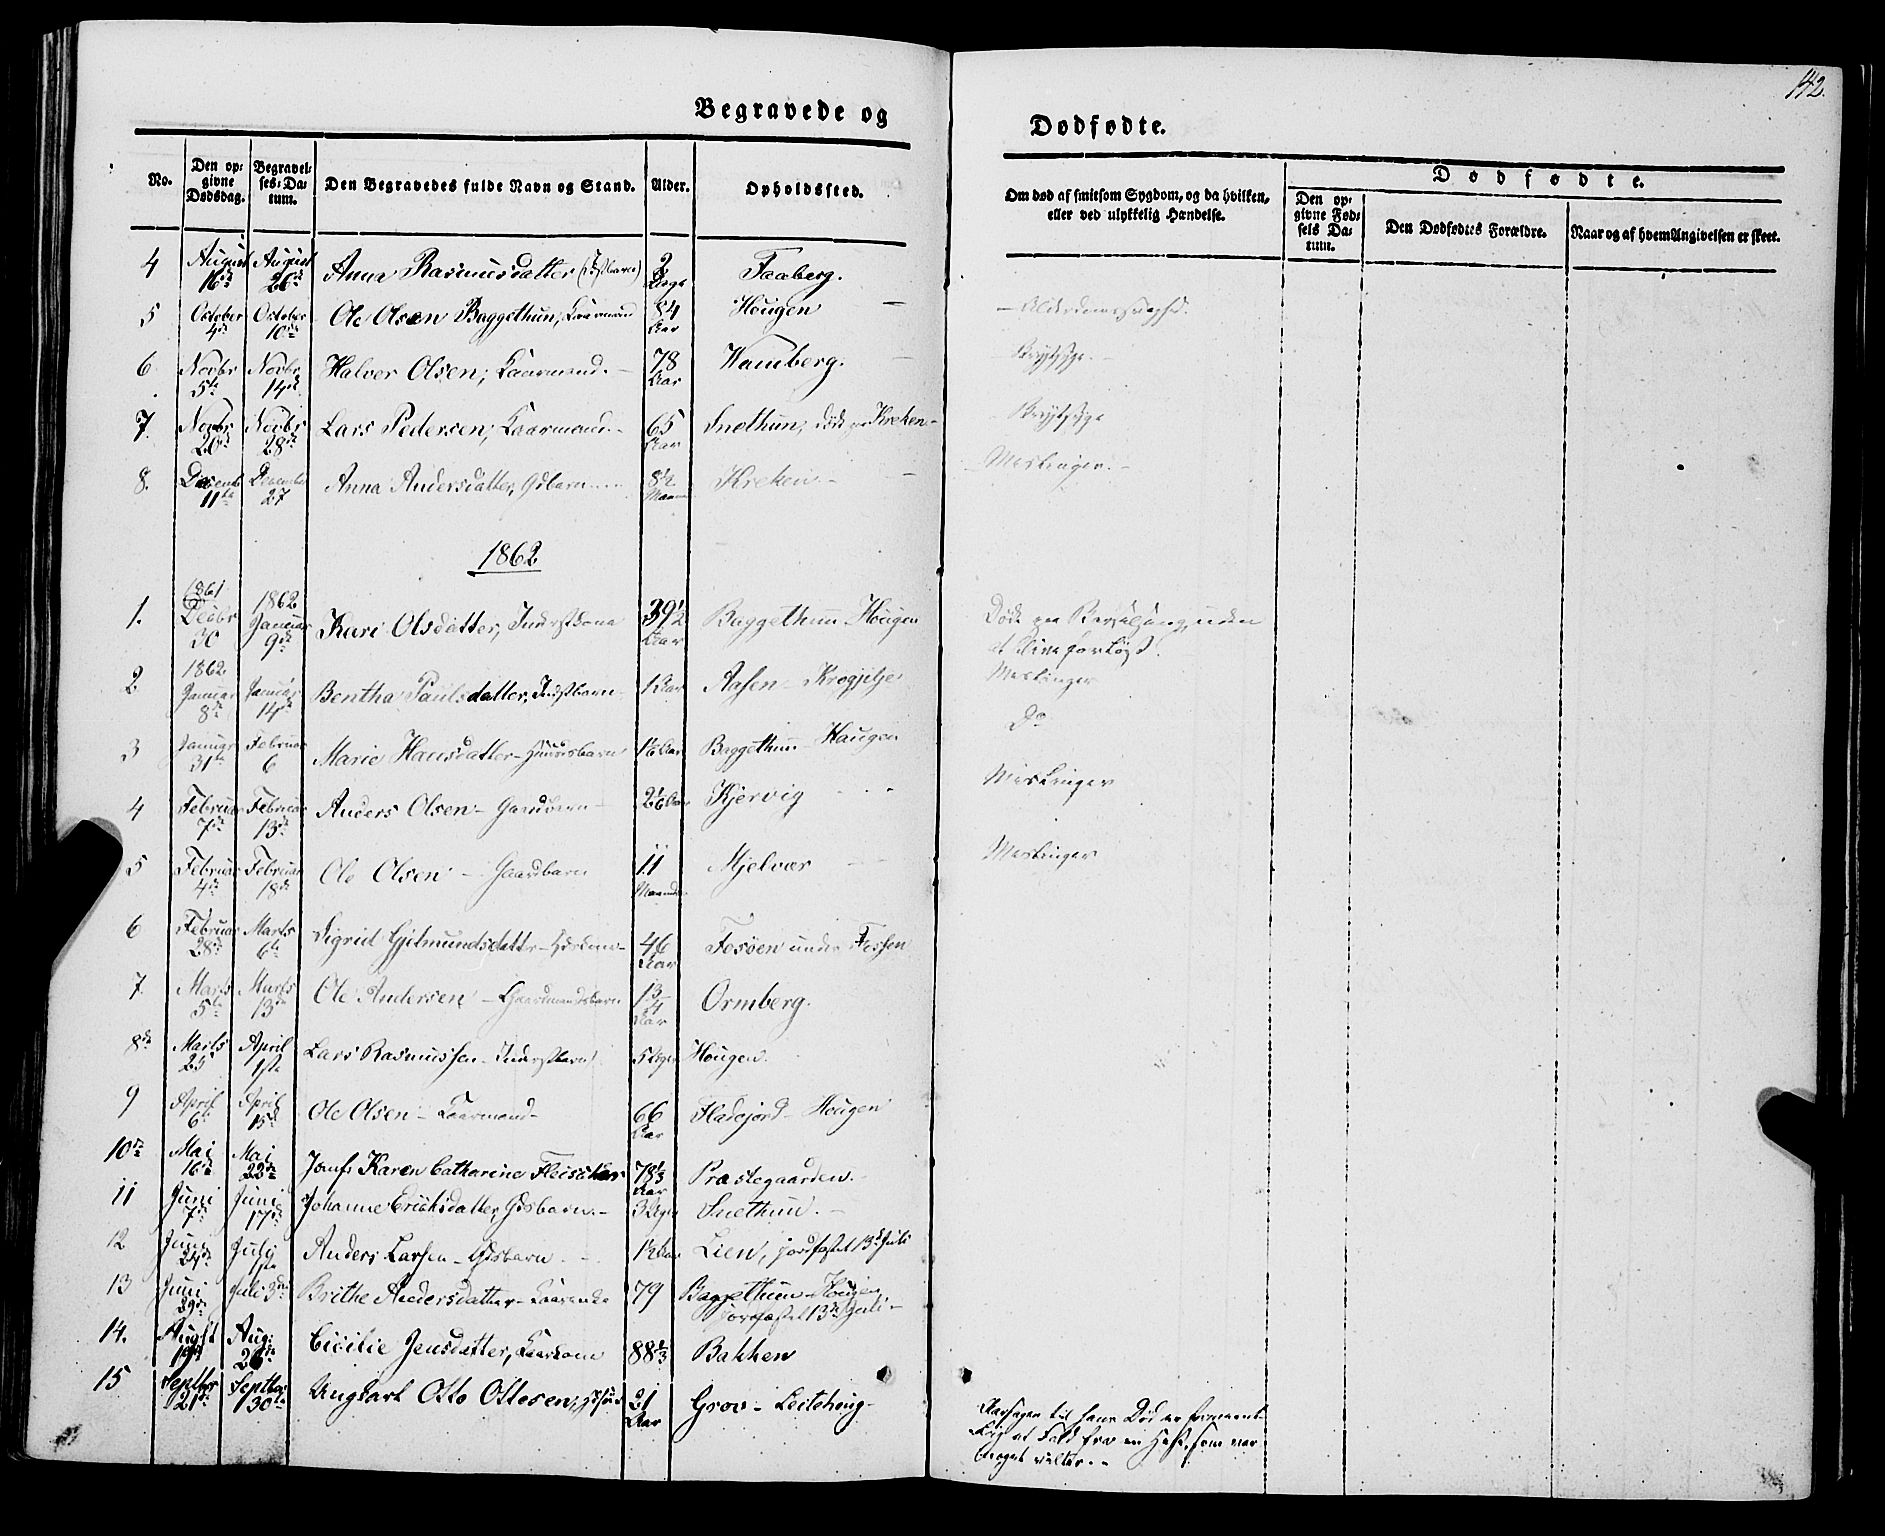 142.
Begravede og Dødfødte.
No. Den opgivne Dødsdag. Begravelses-Datum. Den Begravedes fulde Navn og Stand. Alder. Opholdssted. Om død af smitsom Sygdom, og da hvilken, eller ved ulykkelig Hændelse.
Dødfødte.
Den opgivne Fødsels Datum. Den Dødfødtes Forældre. Naar og af hvem Angivelsen er skeet.
4 August 16de August 26de Anna Rasmusdatter 2 Taaberg.
5 October 4de October 10de Ole Olsen Baggethun, Kaarmand 84 Aar Hougen
6 Novbr 5te Novbr 14de Halver Olsen, Kaarmand. 78 Aar Wamberg.
7. Novbr 20de Novbr 28de Lars Pedersen, Kaarmand. 65 Aar Snethun, død paa Kreken
8. Decemb 11te December 27 Anna Andersdatter, Gdbarn 8½ Maan Kreken Meslinger.
1862
1. 1861 Decbr 30 1862 Januar 9de Kari Olsdatter, Inderstkone 39½ Aar Baggethun Hougen Døde paa Barselseng, uden at blive forløst.
2 1862 Januar 8de Januar 14de Bentha Paulsdatter, Indstbarn 1 Aar Aasen Meslinger
3 Januar 31te Februar 6 Marie Hansdatter Baggethun Haugen Do
4 Februar 7de Februar 13de Anders Olsen Gaardbarn Kjervig Meslinger
5 Februar 4de Februar 18de Ole Olsen Gaardbarn 11 Maaneder Mjelvær Meslinger
6 Februar 28de Marts 6te Sigrid Gjetmundsdattr 46 Aar Fosøen under Fossen
7. Marts 5te Marts 13de Ole Andersen Gaardmandsbarn 13/4 Aar Ormberg.
8de Marts 25 April 1ste Lars Rasmussen Inderstbarn 5 Hougen.
9 April 6te April 15de Ole Olsen Kaarmand 66 Aar Fladejord Hougen
10de Mai 16de Mai 22de Jomf. Karen Cathrine Fleischer 78⅓ Aar Præstegaarden.
11 Juni 7de Juni 17de Johanne Ericksdatter, Gdsbarn. 3 Snethun.
12 Juni 24de July 1ste Anders Larsen Gdsbarn 1½ Aar Lien, jordfæstet 13de Juli
13 Juni 29de Juli 3de Brithe Andersdatter 79 Baggethun Hougen, jordfæstet 13de Juli
14. Augst 19de Aug: 26de Cicilie Jensdatter, Kaarkone 88⅓ Bakken
15 Septbr 21de Septbr 30te Ungkarl Otto Ottosen, 21 Aar Grov Leitehoug Aarsagen til hans Død er formeent-
lig at Fald fra en Hest, som var
meget vilter.